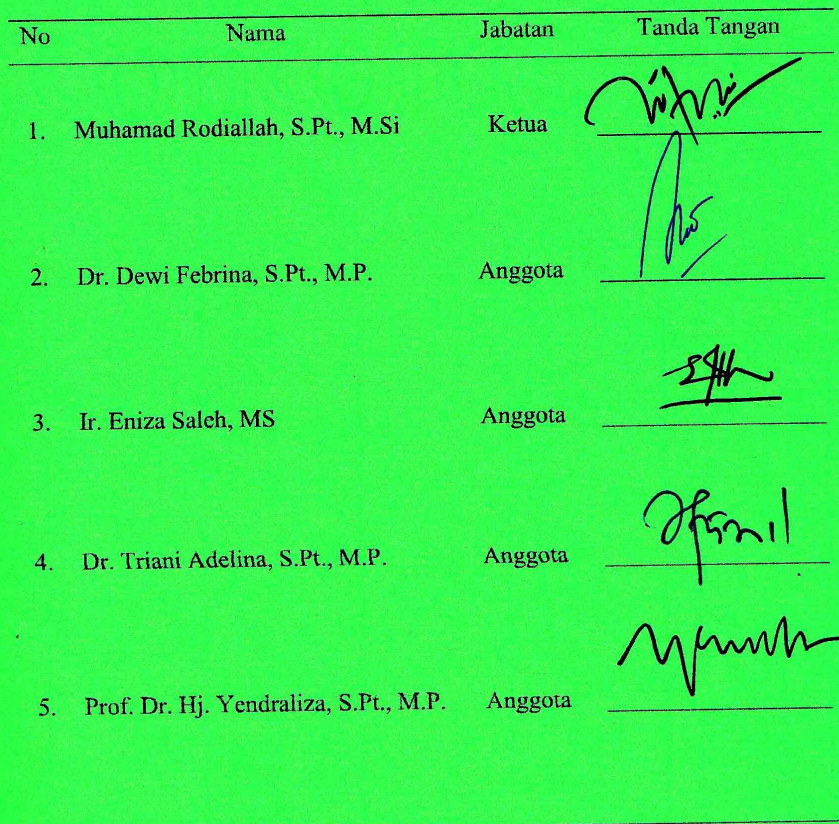 No Nama Jabatan Tanda Tangan
1. Muhamad Rodiallah, S.Pt., M.Si Ketua
2. Dr. Dewi Febrina, S.Pt., M.P. Anggota
3. Ir. Eniza Saleh, MS Anggota
4. Dr. Triani Adelina, S.Pt., M.P. Anggota
5. Prof. Dr. Hj. Yendraliza, S.Pt., M.P. Anggota